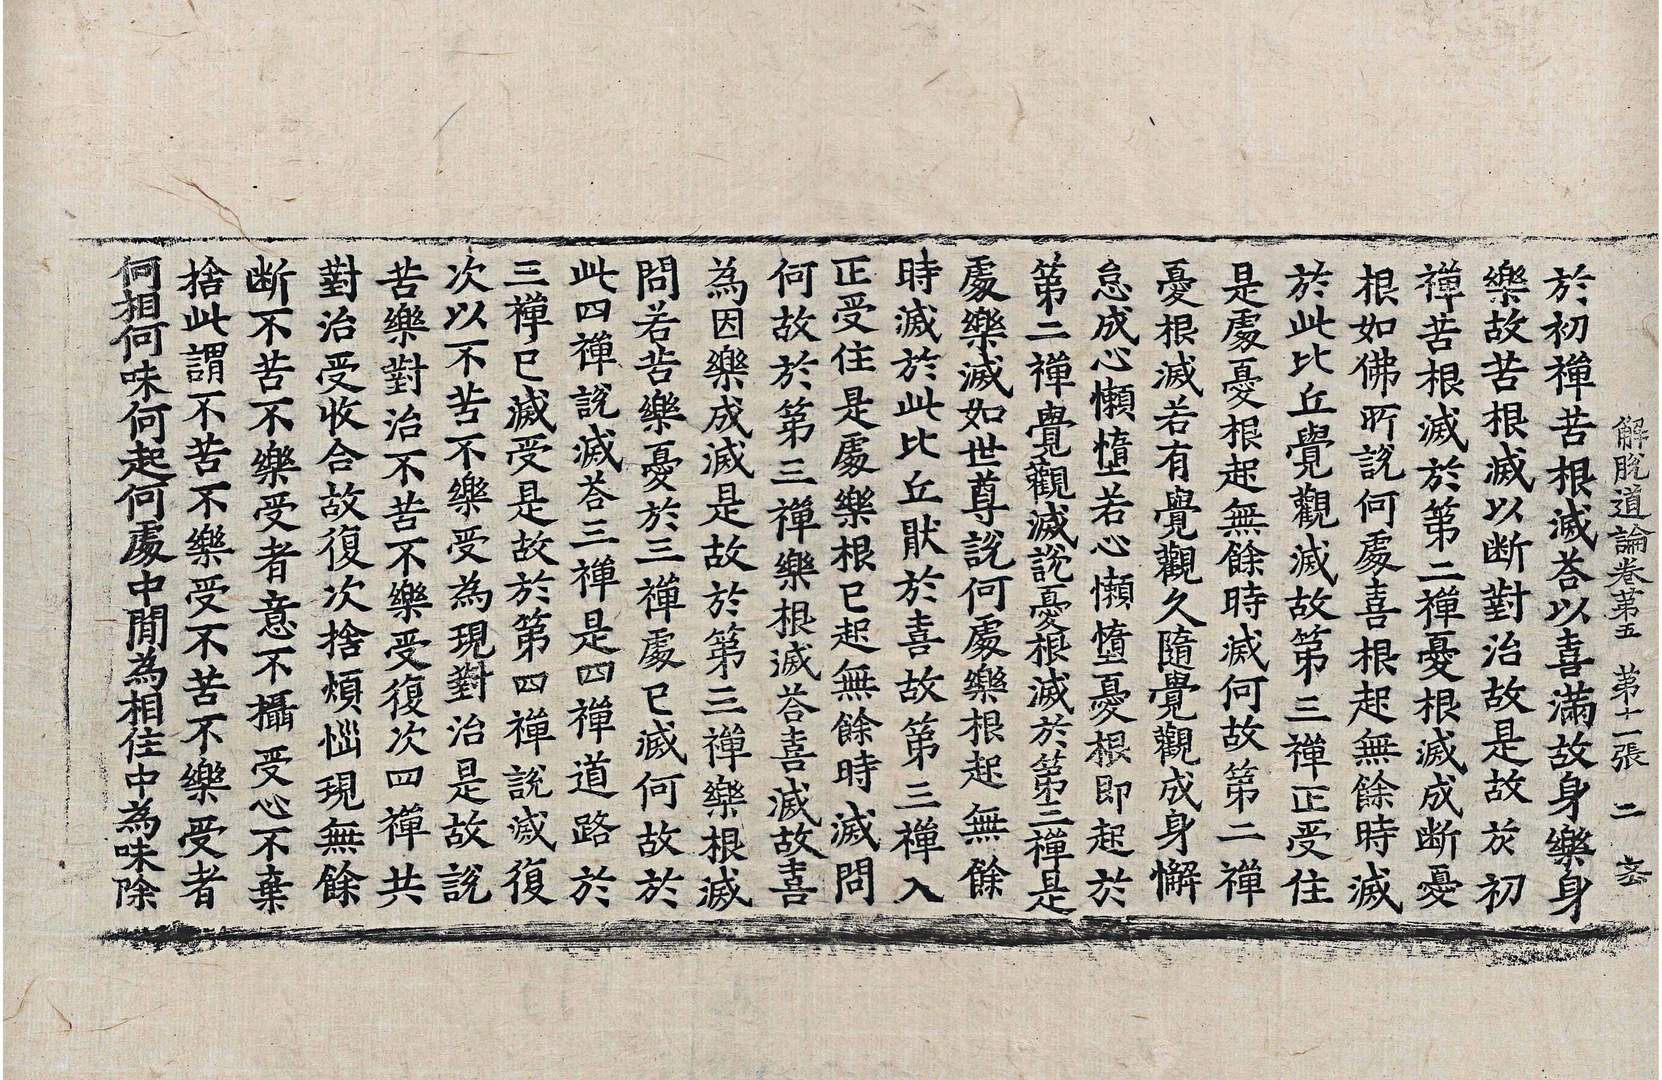 解脫道論卷第五　第十一張　二　忝
於初禪苦根滅荅以喜滿故身樂身
樂故苦根滅以断對治故是故於初
禪苦根滅於第二禪憂根滅成断憂
根如佛所說何處喜根起無餘時滅
於此比丘覺觀滅故第三禪正受住
是處憂根起無餘時滅何故第二禪
憂根滅若有覺觀久隨覺觀成身懈
怠成心懶墮若心懶墮憂根即起於
第二禪覺觀滅說憂根滅於第三禪是
處樂滅如世尊說何處樂根起無餘
時滅於此比丘猒於喜故第三禪入
正受住是處樂根已起無餘時滅問
何故於第三禪樂根滅荅喜滅故喜
為因樂成滅是故於第三禪樂根滅
問若苦樂憂於三禪處已滅何故於
此四禪說滅荅三禪是四禪道路於
三禪已滅受是故於第四禪說滅復
次以不苦不樂受為現對治是故說
苦樂對治不苦不樂受復次四禪共
對治受收合故復次捨煩惱現無餘
断不苦不樂受者意不攝受心不棄
捨此謂不苦不樂受不苦不樂受者
何相何味何起何處中間為相住中為味除